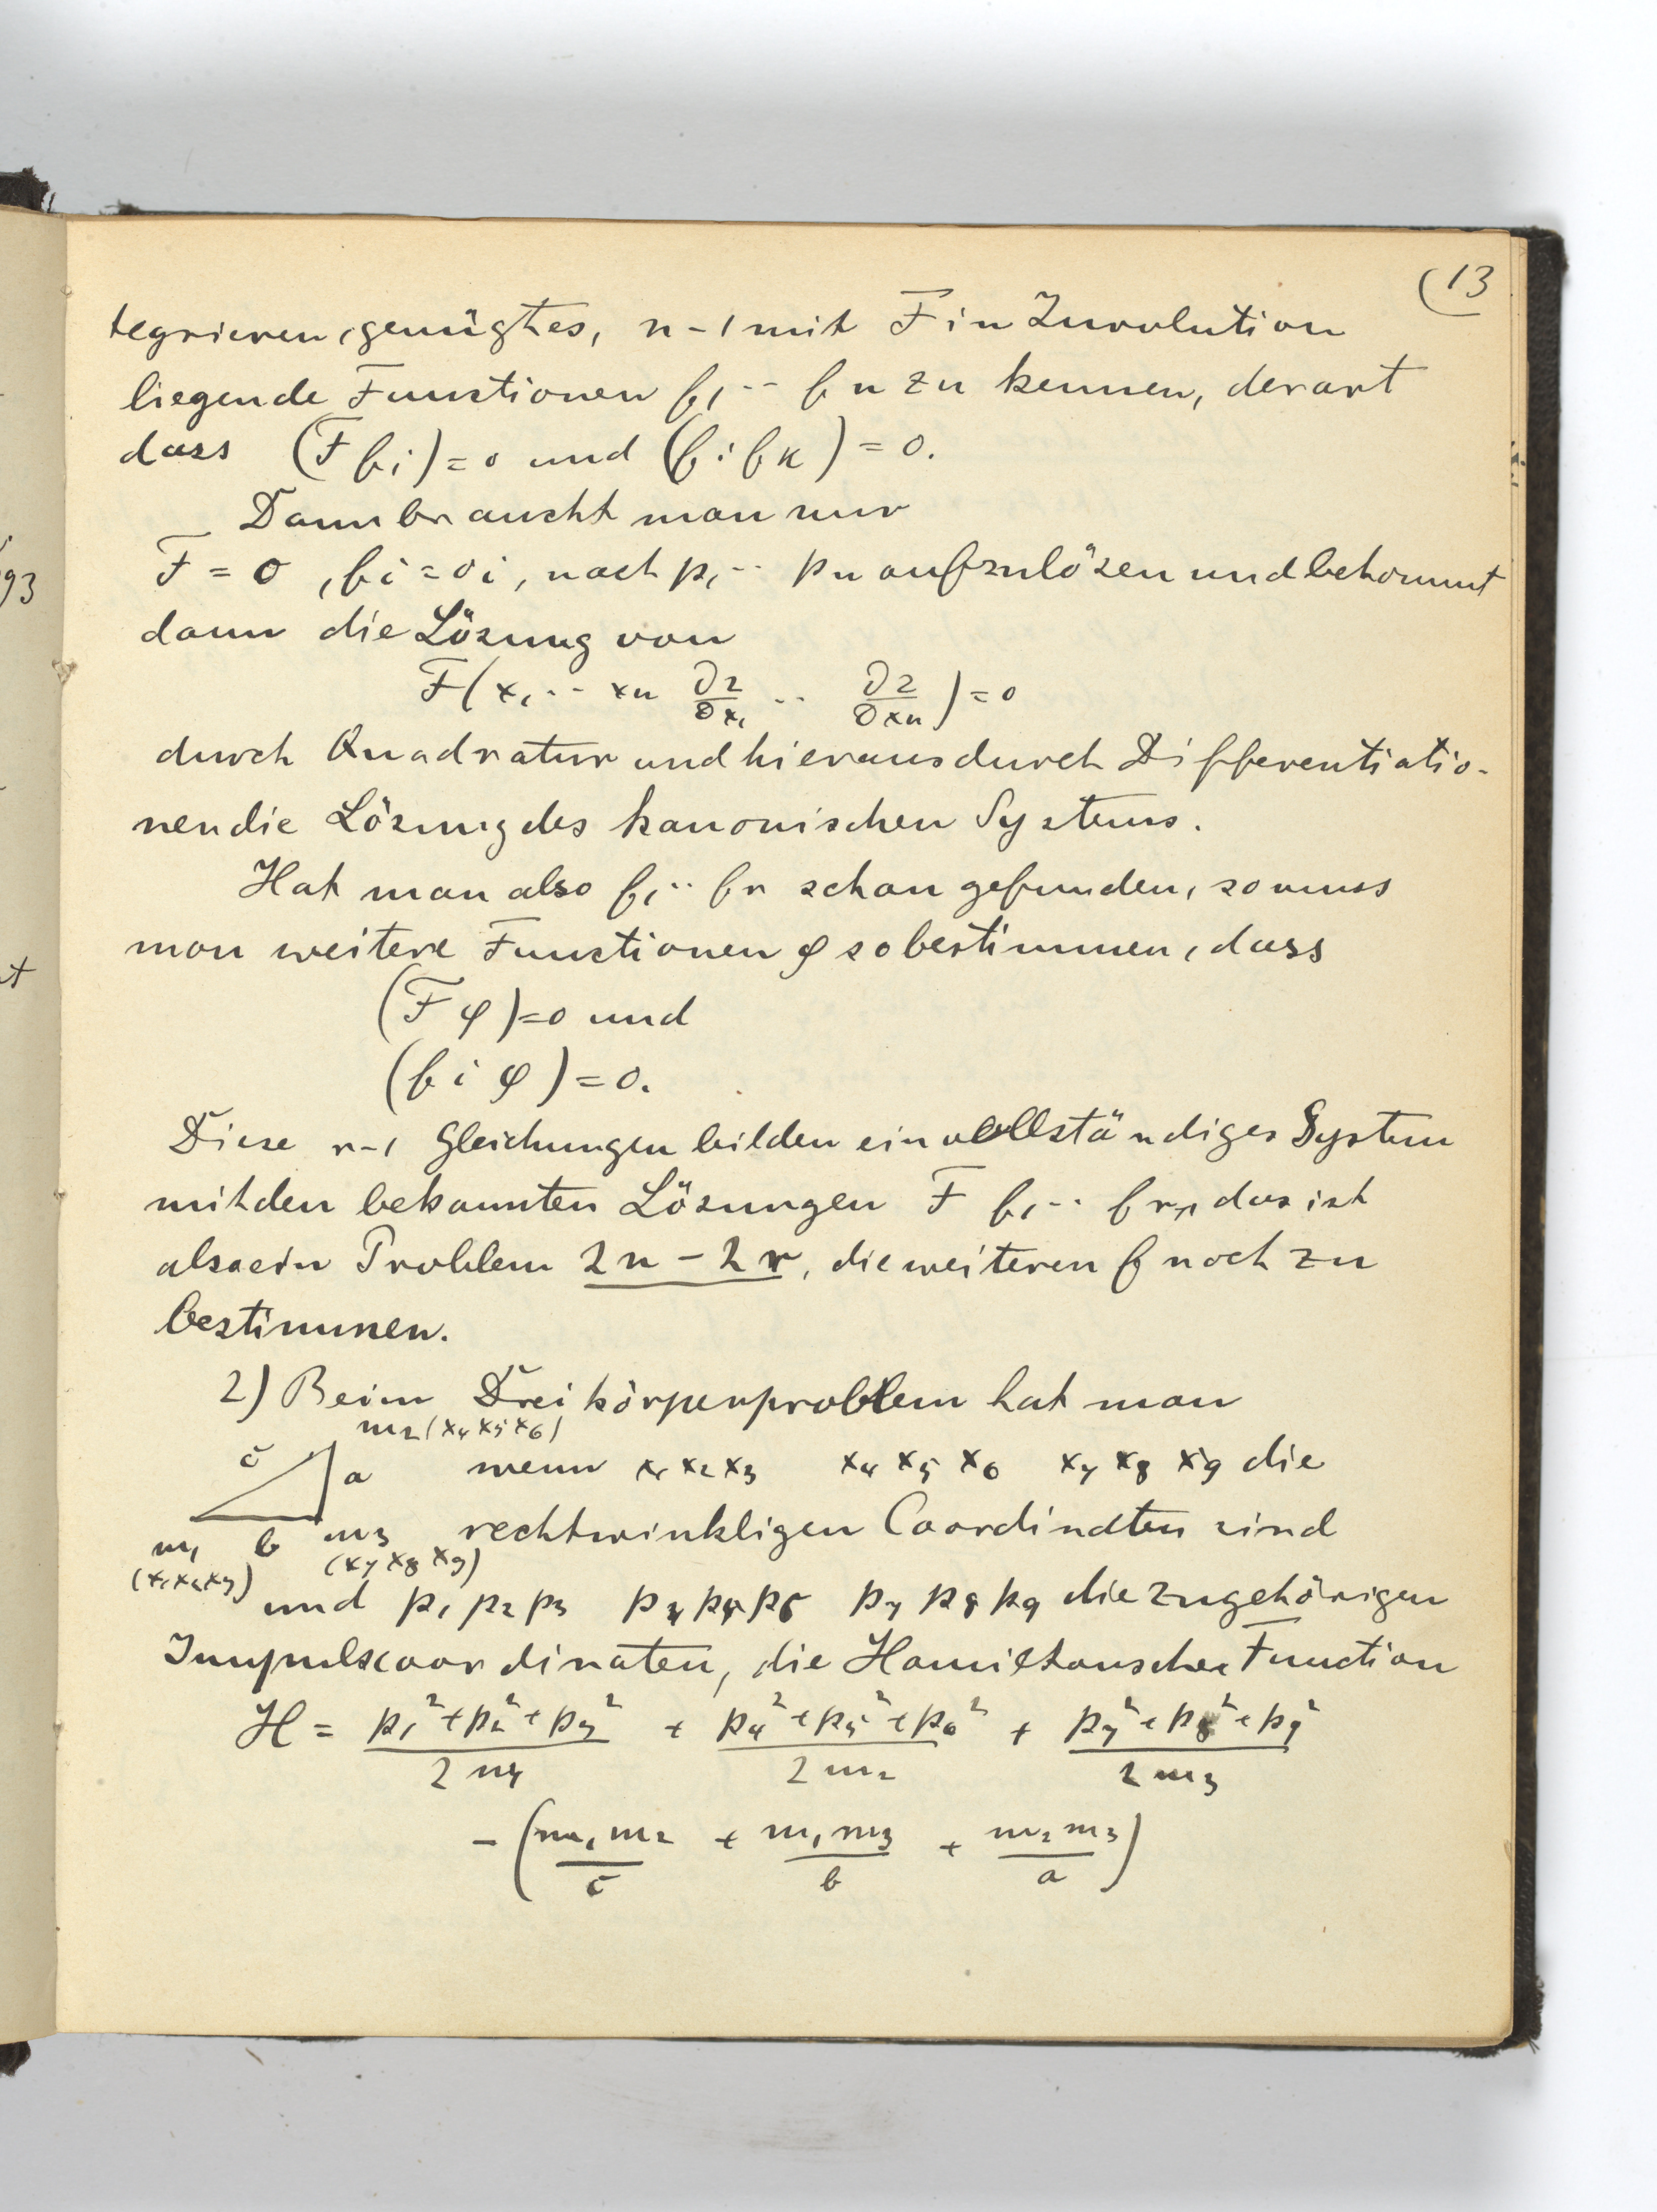 (13
tegrieren, genügt es, n-1 mit F in Involution
liegende Functionen f₁ ·· fn zu kennen, derart
dass (F fi) = 0 und (fi fk) = 0.
Dann braucht man nur
F = 0, fi = ci, nach p₁ ·· pn aufzulösen und bekommt
dann die Lösung von
F(x₁ ·· xn ∂z/∂x₁ ·· ∂z/∂xn) = 0
durch Quadratur und hieraus durch Differentiatio-
nen die Lösung des kanonischen Systems.
Hat man also f₁ ·· fr schon gefunden, so muss
man weitere Functionen φ so bestimmen, dass
(F φ) = 0 und
(fi φ) = 0.
Diese r-1 Gleichungen bilden ein vollständiges System
mit den bekannten Lösungen F f₁ ·· fr, das ist
also ein Problem 2n - 2r, die weiteren f noch zu
bestimmen.
2) Beim Dreikörperproblem hat man
m₂ (x₄ x₅ x₆)
c a wenn x₁ x₂ x₃ x₄ x₅ x₆ x₇ x₈ x₉ die
m₁ b m₃ rechtwinkligen Coordinaten sind
(x₁ x₂ x₃) (x₇ x₈ x₉)
und p₁ p₂ p₃ p₄ p₅ p₆ p₇ p₈ p₉ die zugehörigen
Impulscoordinaten, die Hamiltonsche Function
H = (p₁² + p₂² + p₃²)/2m₁ + (p₄² + p₅² + p₆²)/2m₂ + (p₇² + p₈² + p₉²)/2m₃
- (m₁m₂/c + m₁m₃/b + m₂m₃/a)